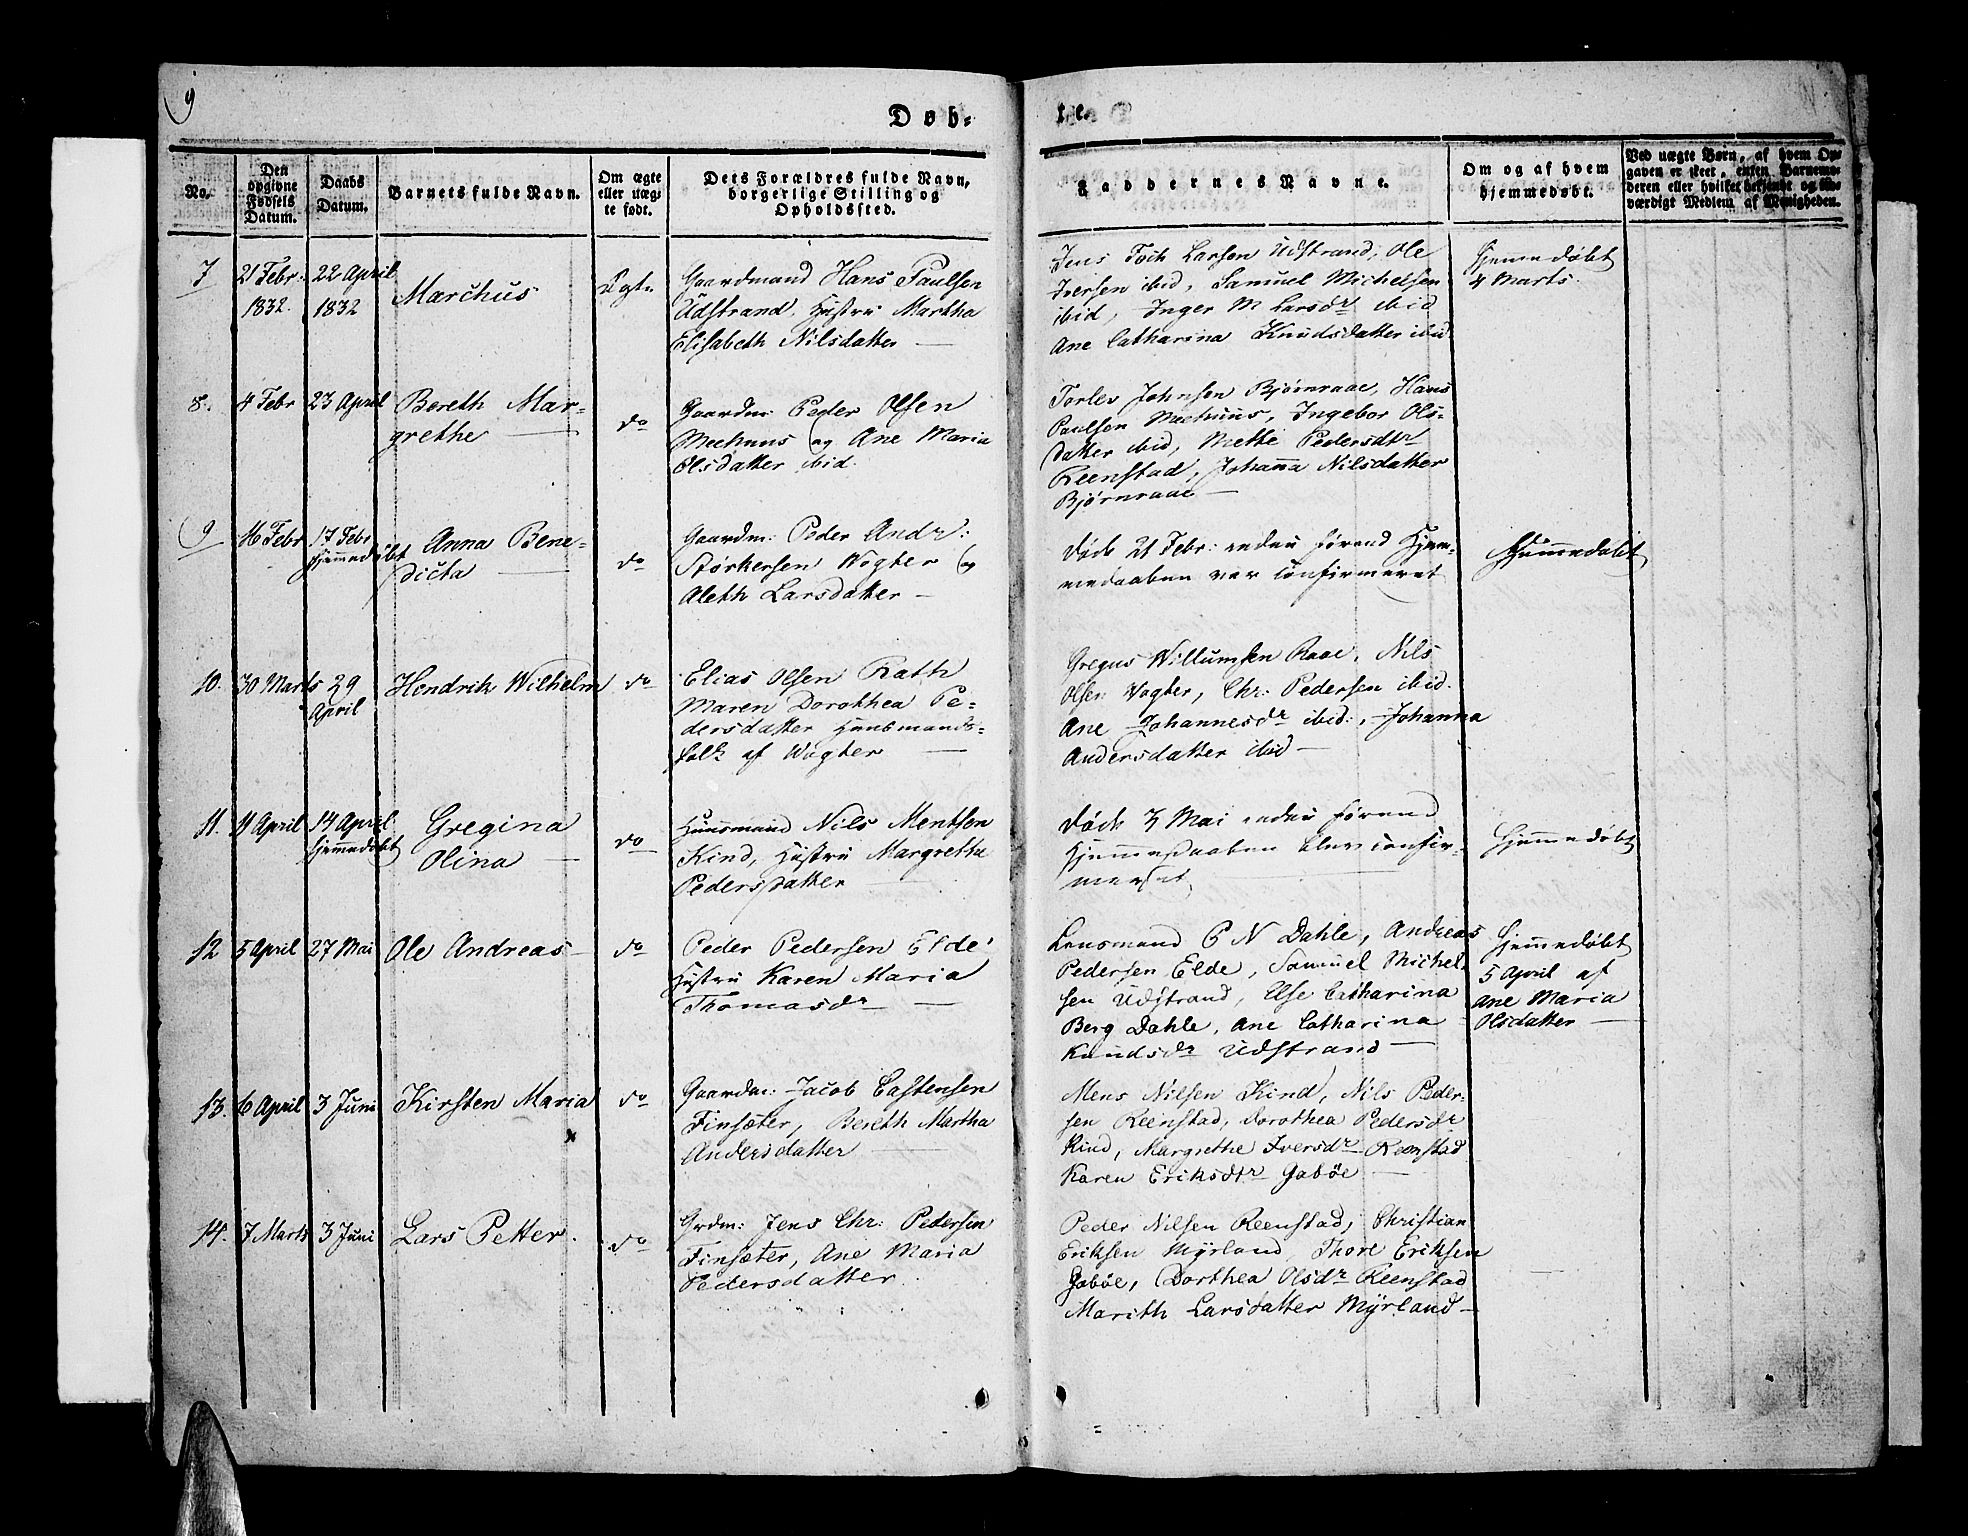 9
Døb-
te.
No.
Den opgivne Fødsels Datum.
Daabs Datum.
Barnets fulde Navn.
Om ægte eller uægte født.
Dets Forældres fulde Navn, borgerlige Stilling og Opholdssted.
Faddernes Navne.
Om og af hvem hjemmedøbt.
Ved uægte Børn, af hvem Opgaven er skeet, enten Barnemoderen eller hvilket bekjendt og troværdigt Medlem af Menigheden.
7
21 Febr:
1832.
22 April
1832
Marchus
Ægte
Gaardmand Hans Paulsen
Udstrand, Hustru Martha
Elisabeth Nilsdatter —
Jens Foch Larsen Udstrand, Ole
Iversen ibid, Samuel Michelsen
ibid, Inger M Larsdr ibid
Ane Catharina Knudsdatter ibid
Hjemmedøbt
4 Marts.
8.
4 Febr
23 April
Bereth Mar-
grethe —
do
Gaardm: Peder Olsen
Meehuus og Ane Maria
Olsdatter ibid.
Torlev Johnsen Bjørnraae, Hans
Paulsen Meehuus, Ingebor Ols-
datter ibid, Mette Pedersdtr
Reenstad, Johanna Nilsdatter
Bjørnraae —
9
16 Febr
17 Febr
hjemmedøbt
Anna Bene-
dicta —
do
Gaardm: Peder Andr:
Størkersen Vogter og
Aleth Larsdatter —
Døde 21 Febr: endnu førend Hjem-
medaaben var confirmeret
Hjemmedøbt
10.
30 Marts
29
April
Hendrik Wilhelm
do
Elias Olsen Rath
Maren Dorothea Pe-
dersdatter Huusmands-
folk af Vogter —
Gregus Willumsen Raae, Nils
Olsen Vogter, Chr: Pedersen ibid.
Ane Johannesdr ibid:, Johanna
Andersdatter ibid —
11.
11 April
14 April
hjemmedøbt
Gregina
Olina —
do
Huusmand Nils Mentsen
Kind, Hustru Margretha
Pedersdatter —
Døde 3 Mai endnu førend
Hjemmedaaben blev confir-
meret
Hjemmedøbt
12
5 April
27 Mai
Ole Andreas —
do
Peder Pedersen Elde
Hustru Karen Maria
Thomasdr —
Lensmand P N Dahle, Andreas
Pedersen Elde, Samuel Michel
sen Udstrand, Else Catharina
Berg Dahle, Ane Catharina
Knudsdr Udstrand —
Hjemmedøbt
5 April af
Ane Maria
Olsdatter —
13.
6 April
3 Juni
Kirsten Maria
do
Gaardm: Jacob Castensen
Finsæter, Bereth Martha
Andersdatter —
Mens Nilsen Kind, Nils Peder-
sen Reenstad, Dorothea Pedersdr
Kind, Margrethe Iversdr Reenstad
Karen Eriksdtr Gabøe —
14.
7 Marts
3 Juni
Lars Petter.
do
Grdm: Jens Chr: Pedersen
Finsæter, Ane Maria
Pedersdatter
Peder Nilsen Reenstad, Christian
Eriksen Myrland, Thore Eriksen
Gabøe, Dorthea Olsdr Reenstad
Marith Larsdatter Myrland —